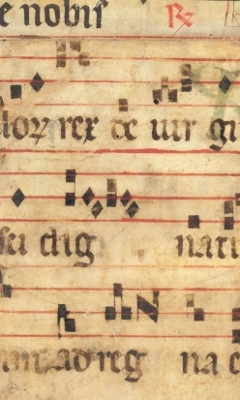 e nobis ℟
loꝝ rex de uir gi
dig nat
ad reg na c